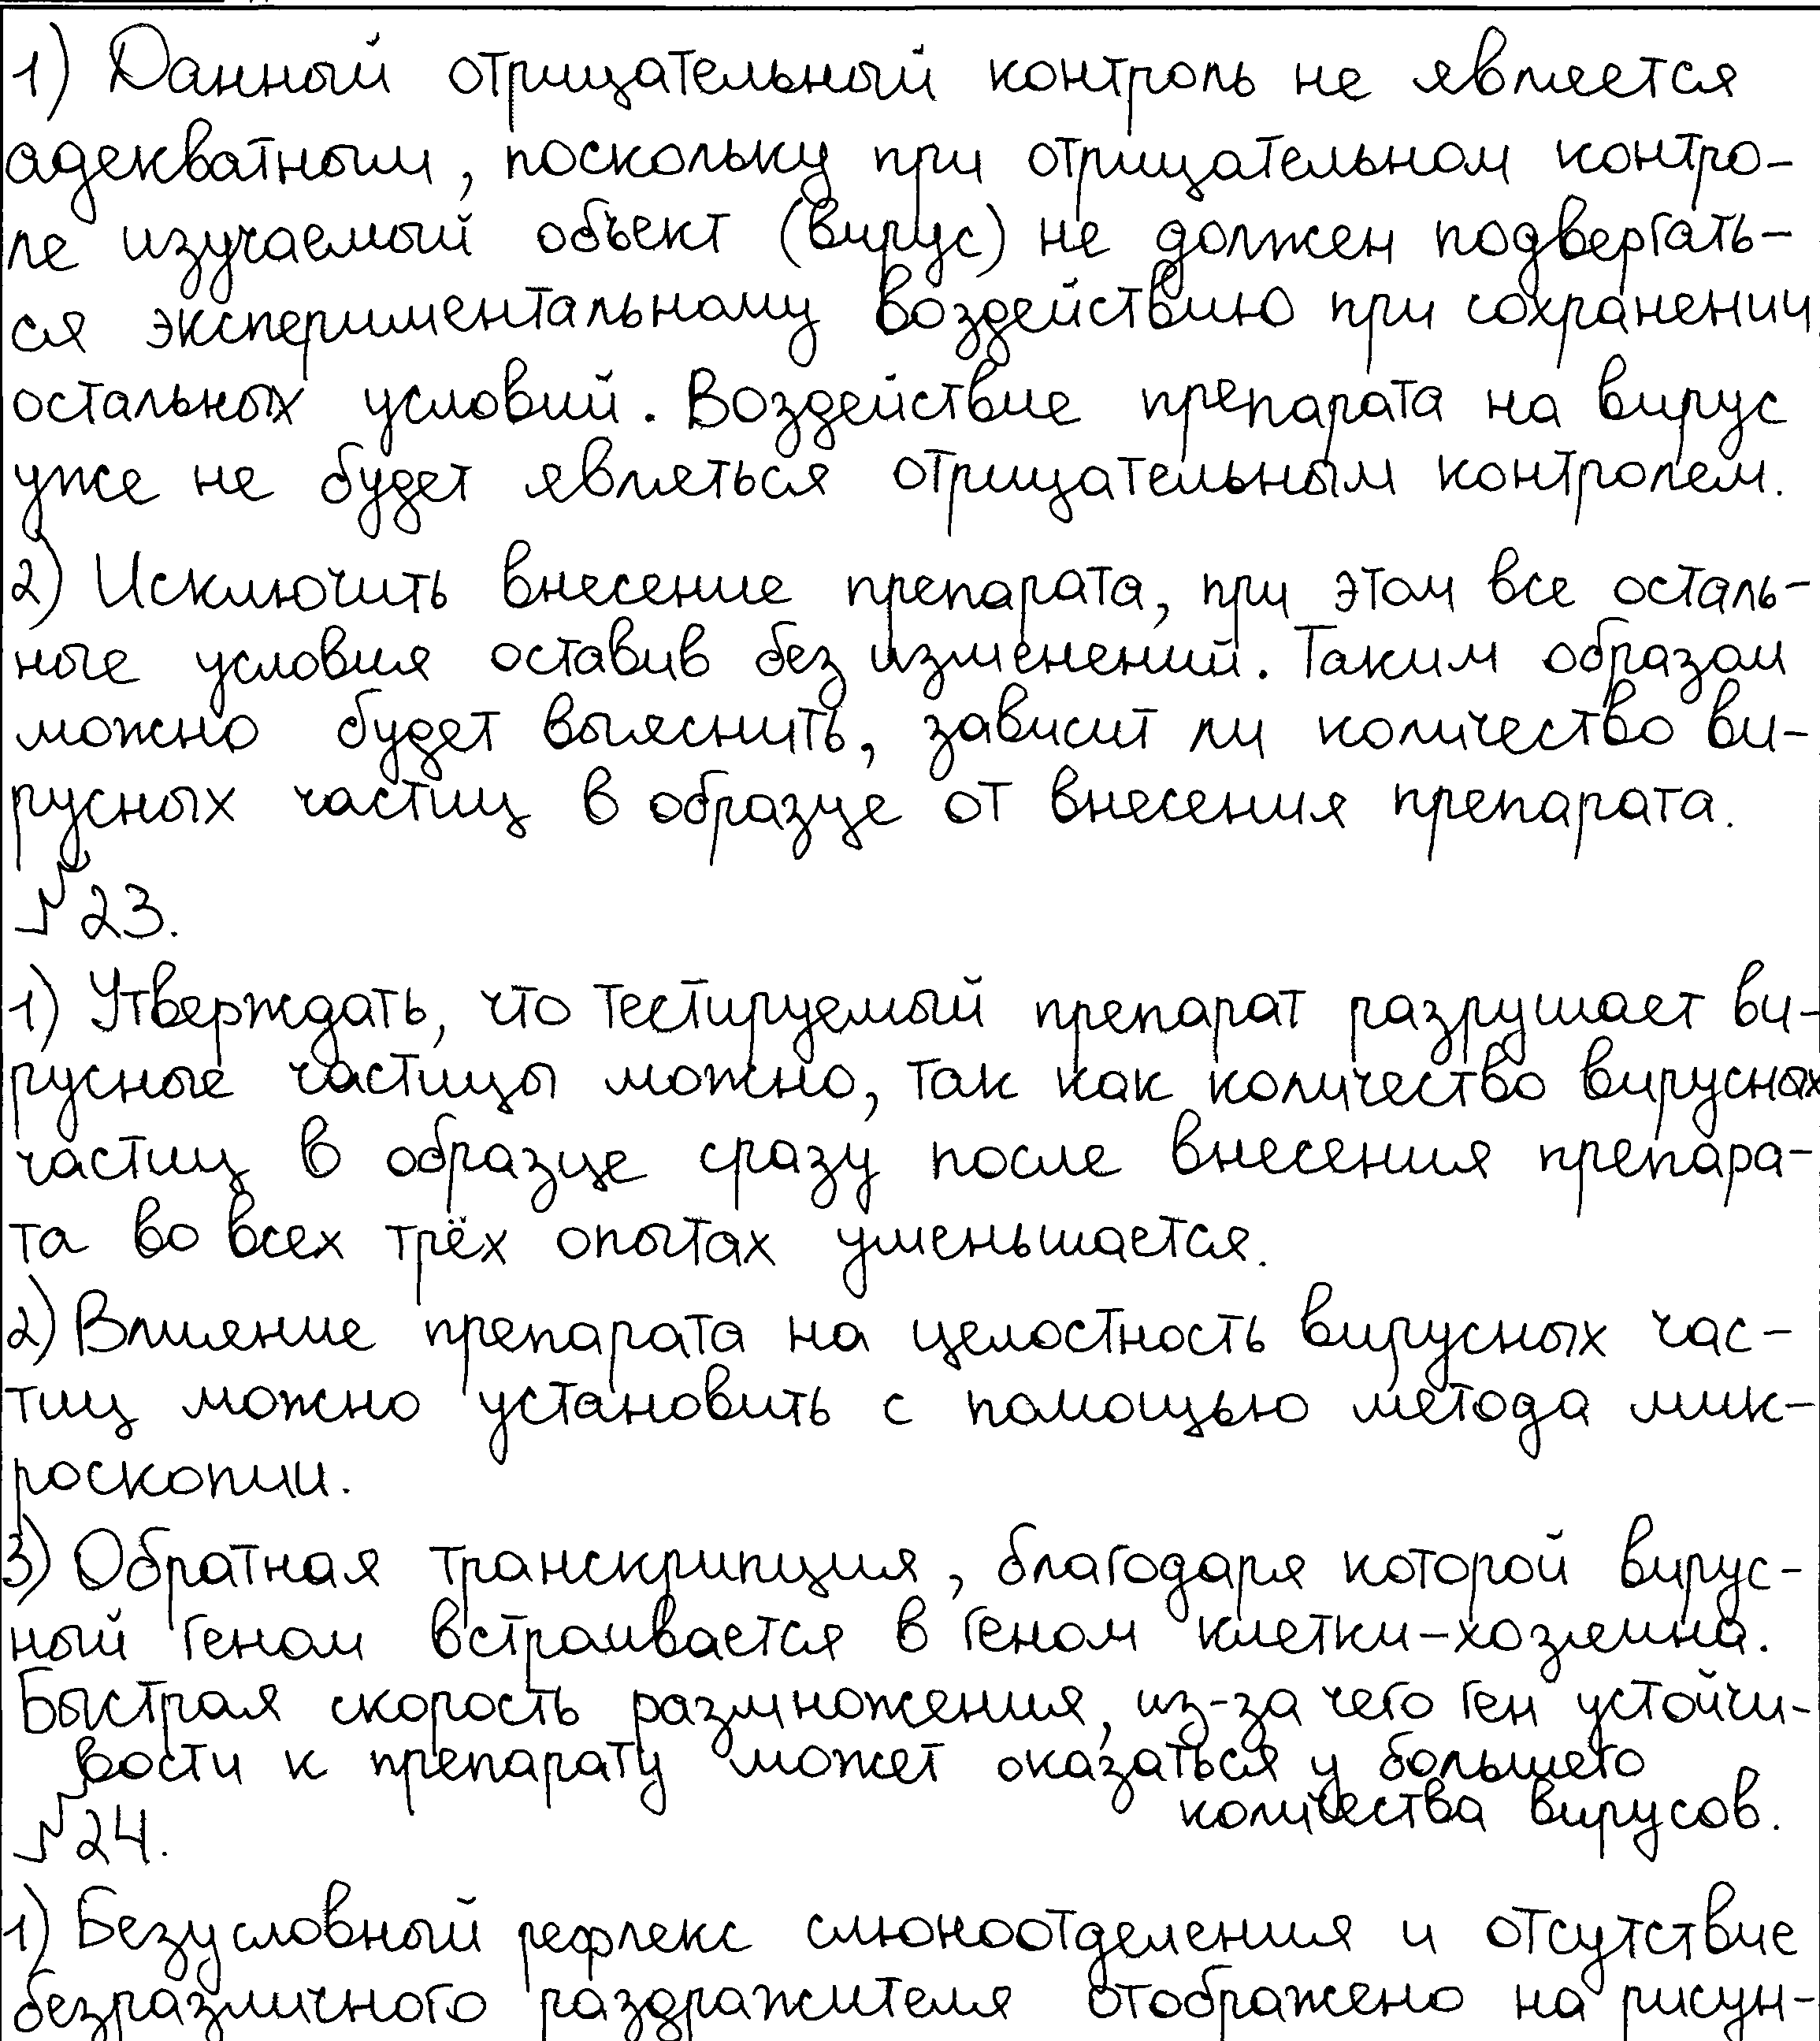 1) Данный отрицательный контроль не является
адекватным, поскольку при отрицательном контро-
ле изучаемый объект (вирус) не должен подвергать-
ся экспериментальному воздействию при сохранении
остальных условий. Воздействие препарата на вирус
уже не будет являться отрицательным контролем.
2) Исключить внесение препарата, при этом все осталь-
ные условия оставив без изменений. Таким образом
можно будет выяснить, зависит ли количество ви-
русных частиц в образце от внесения препарата.
№23.
1) Утверждать, что тестируемый препарат разрушает ви-
русные частицы можно, так как количество вирусных
частиц в образце сразу после внесения препара-
та во всех трёх опытах уменьшается.
2) Влияние препарата на целостность вирусных час-
тиц можно установить с помощью метода мик-
роскопии.
3) Обратная транскрипция, благодаря которой вирус-
ный геном встраивается в геном клетки-хозяина.
Быстрая скорость размножения, из-за чего ген устойчи-
вости к препарату может оказаться у большего
количества вирусов.
№24.
1) Безусловный рефлекс слюноотделения и отсутствие
безразличного раздражителя отображено на рисун-